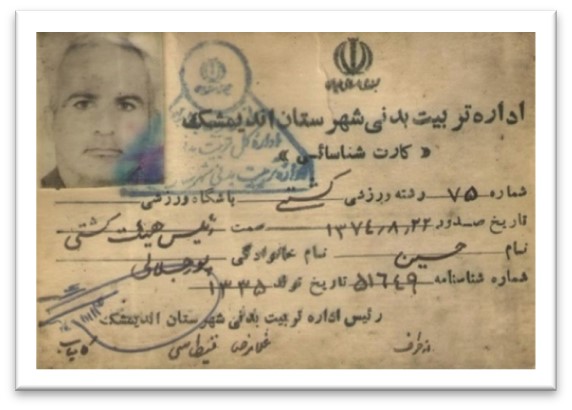 جمهوری اسلامی ایران
اداره تربیت بدنی شهرستان اندیمشک
« کارت شناسائی »
شماره ۷۵ رشته ورزشی کشتی باشگاه ورزشی
تاریخ صدور ۱۳۷۴/۸/۲۲ سمت رئیس هیئت کشتی
نام حسین نام خانوادگی پورجلالی
شماره شناسنامه ۵۱۶۴۹ تاریخ تولد ۱۳۳۵
رئیس اداره تربیت بدنی شهرستان اندیمشک
از طرف غلامرضا